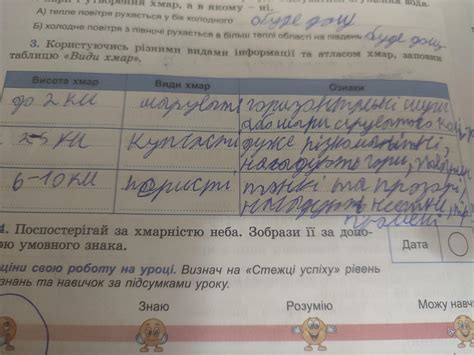 хмар, а в якому – ні.
А) тепле повітря рухається у бік холодного буде дощ
Б) холодне повітря з півночі рухається в більш теплі області на південь буде дощ
3. Користуючись різними видами інформації та атласом хмар, заповни
таблицю «Види хмар».
Висота хмар Види хмар Ознаки
до 2 км шаруваті горизонтальні
або шари сіруватого
2-6 км купчасті дуже різноманітні,
нагадують гори,
6-10 км перисті тонкі та прозорі,
нагадують
4. Поспостерігай за хмарністю неба. Зобрази її за допо-
ою умовного знака.
Дата
ціни свою роботу на уроці. Визнач на «Стежці успіху» рівень
знань та навичок за підсумками уроку.
Знаю Розумію Можу навч